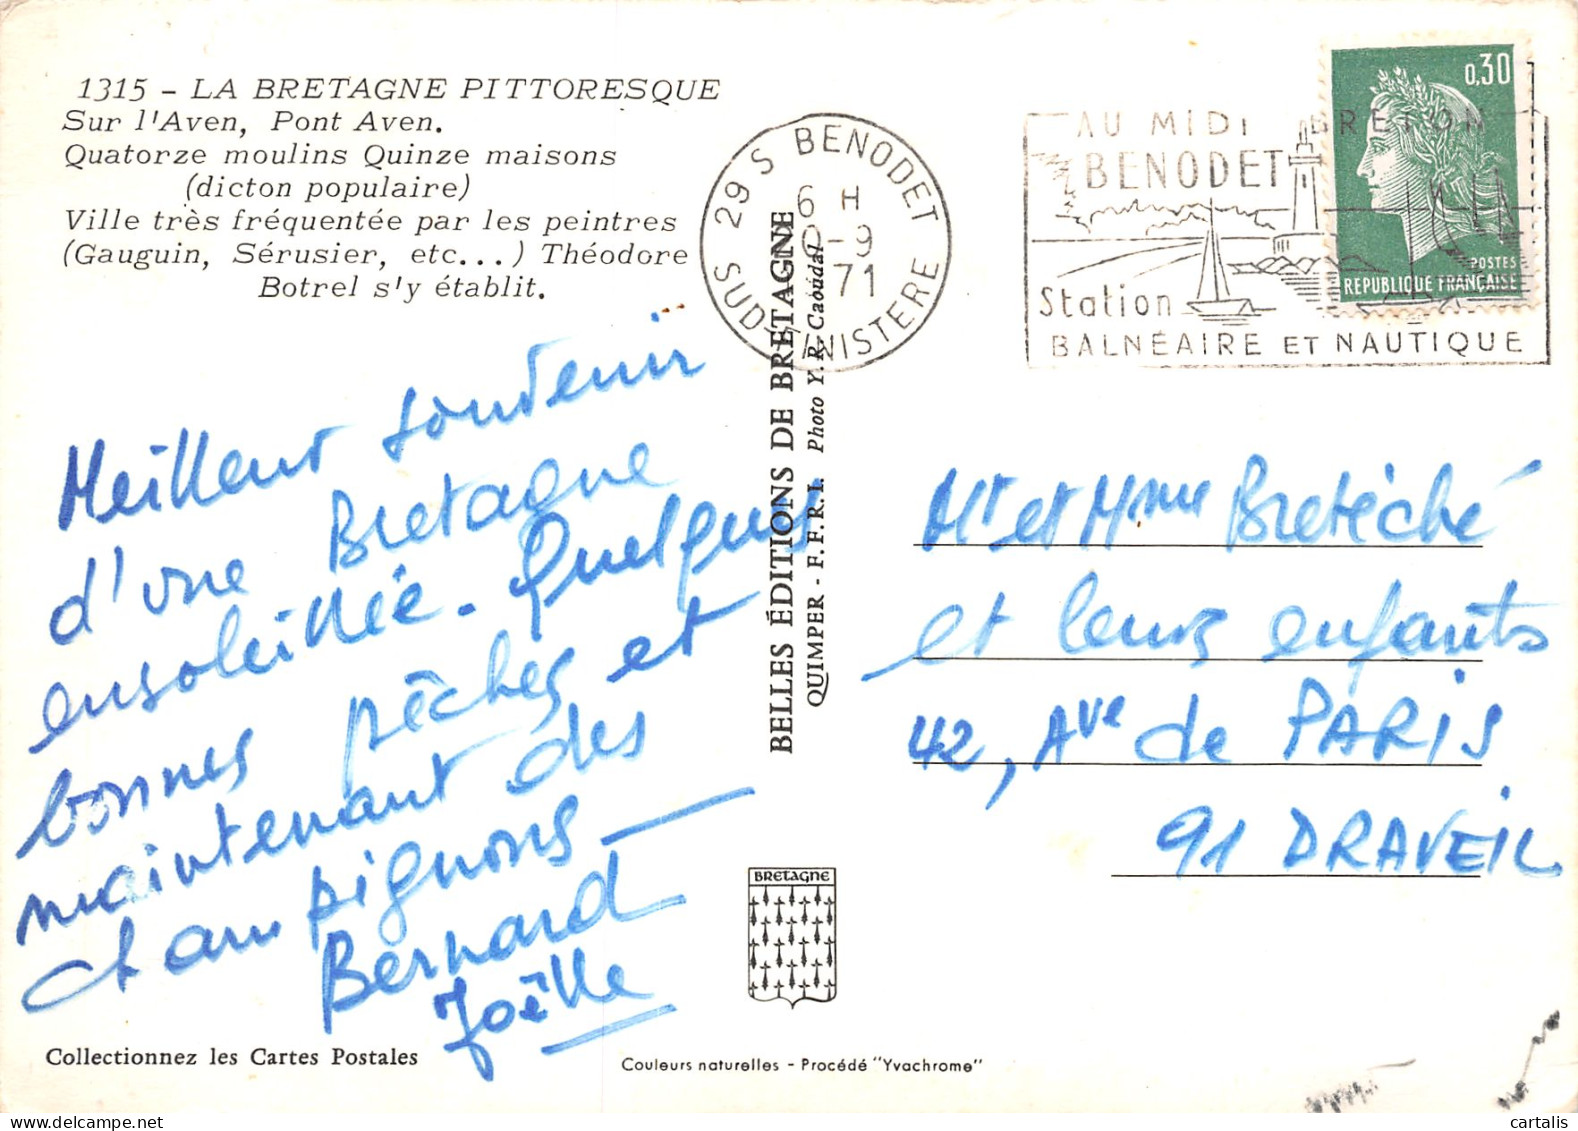 1315 - LA BRETAGNE PITTORESQUE
Sur l'Aven, Pont Aven.
Quatorze moulins Quinze maisons
(dicton populaire)
Ville très fréquentée par les peintres
(Gauguin, Sérusier, etc...) Théodore
Botrel s'y établit.
Meilleur souvenir
d'une Bretagne
ensoleillée - Quelques
bonnes pêches et
maintenant des
champignons —
Bernard
Joëlle
Collectionnez les Cartes Postales
BELLES ÉDITIONS DE BRETAGNE
QUIMPER - F.F.R.I. Photo Y.R. Caoudal
29 S BENODET
6 H
-9
71
SUD-FINISTERE
AU MIDI BRETON
BENODET
Station
BALNÉAIRE ET NAUTIQUE
0,30
POSTES
REPUBLIQUE FRANÇAISE
Mr et Mme Bretéché
et leurs enfants
42, Ave de PARIS
91 DRAVEIL
BRETAGNE
Couleurs naturelles - Procédé "Yvachrome"
cartalis